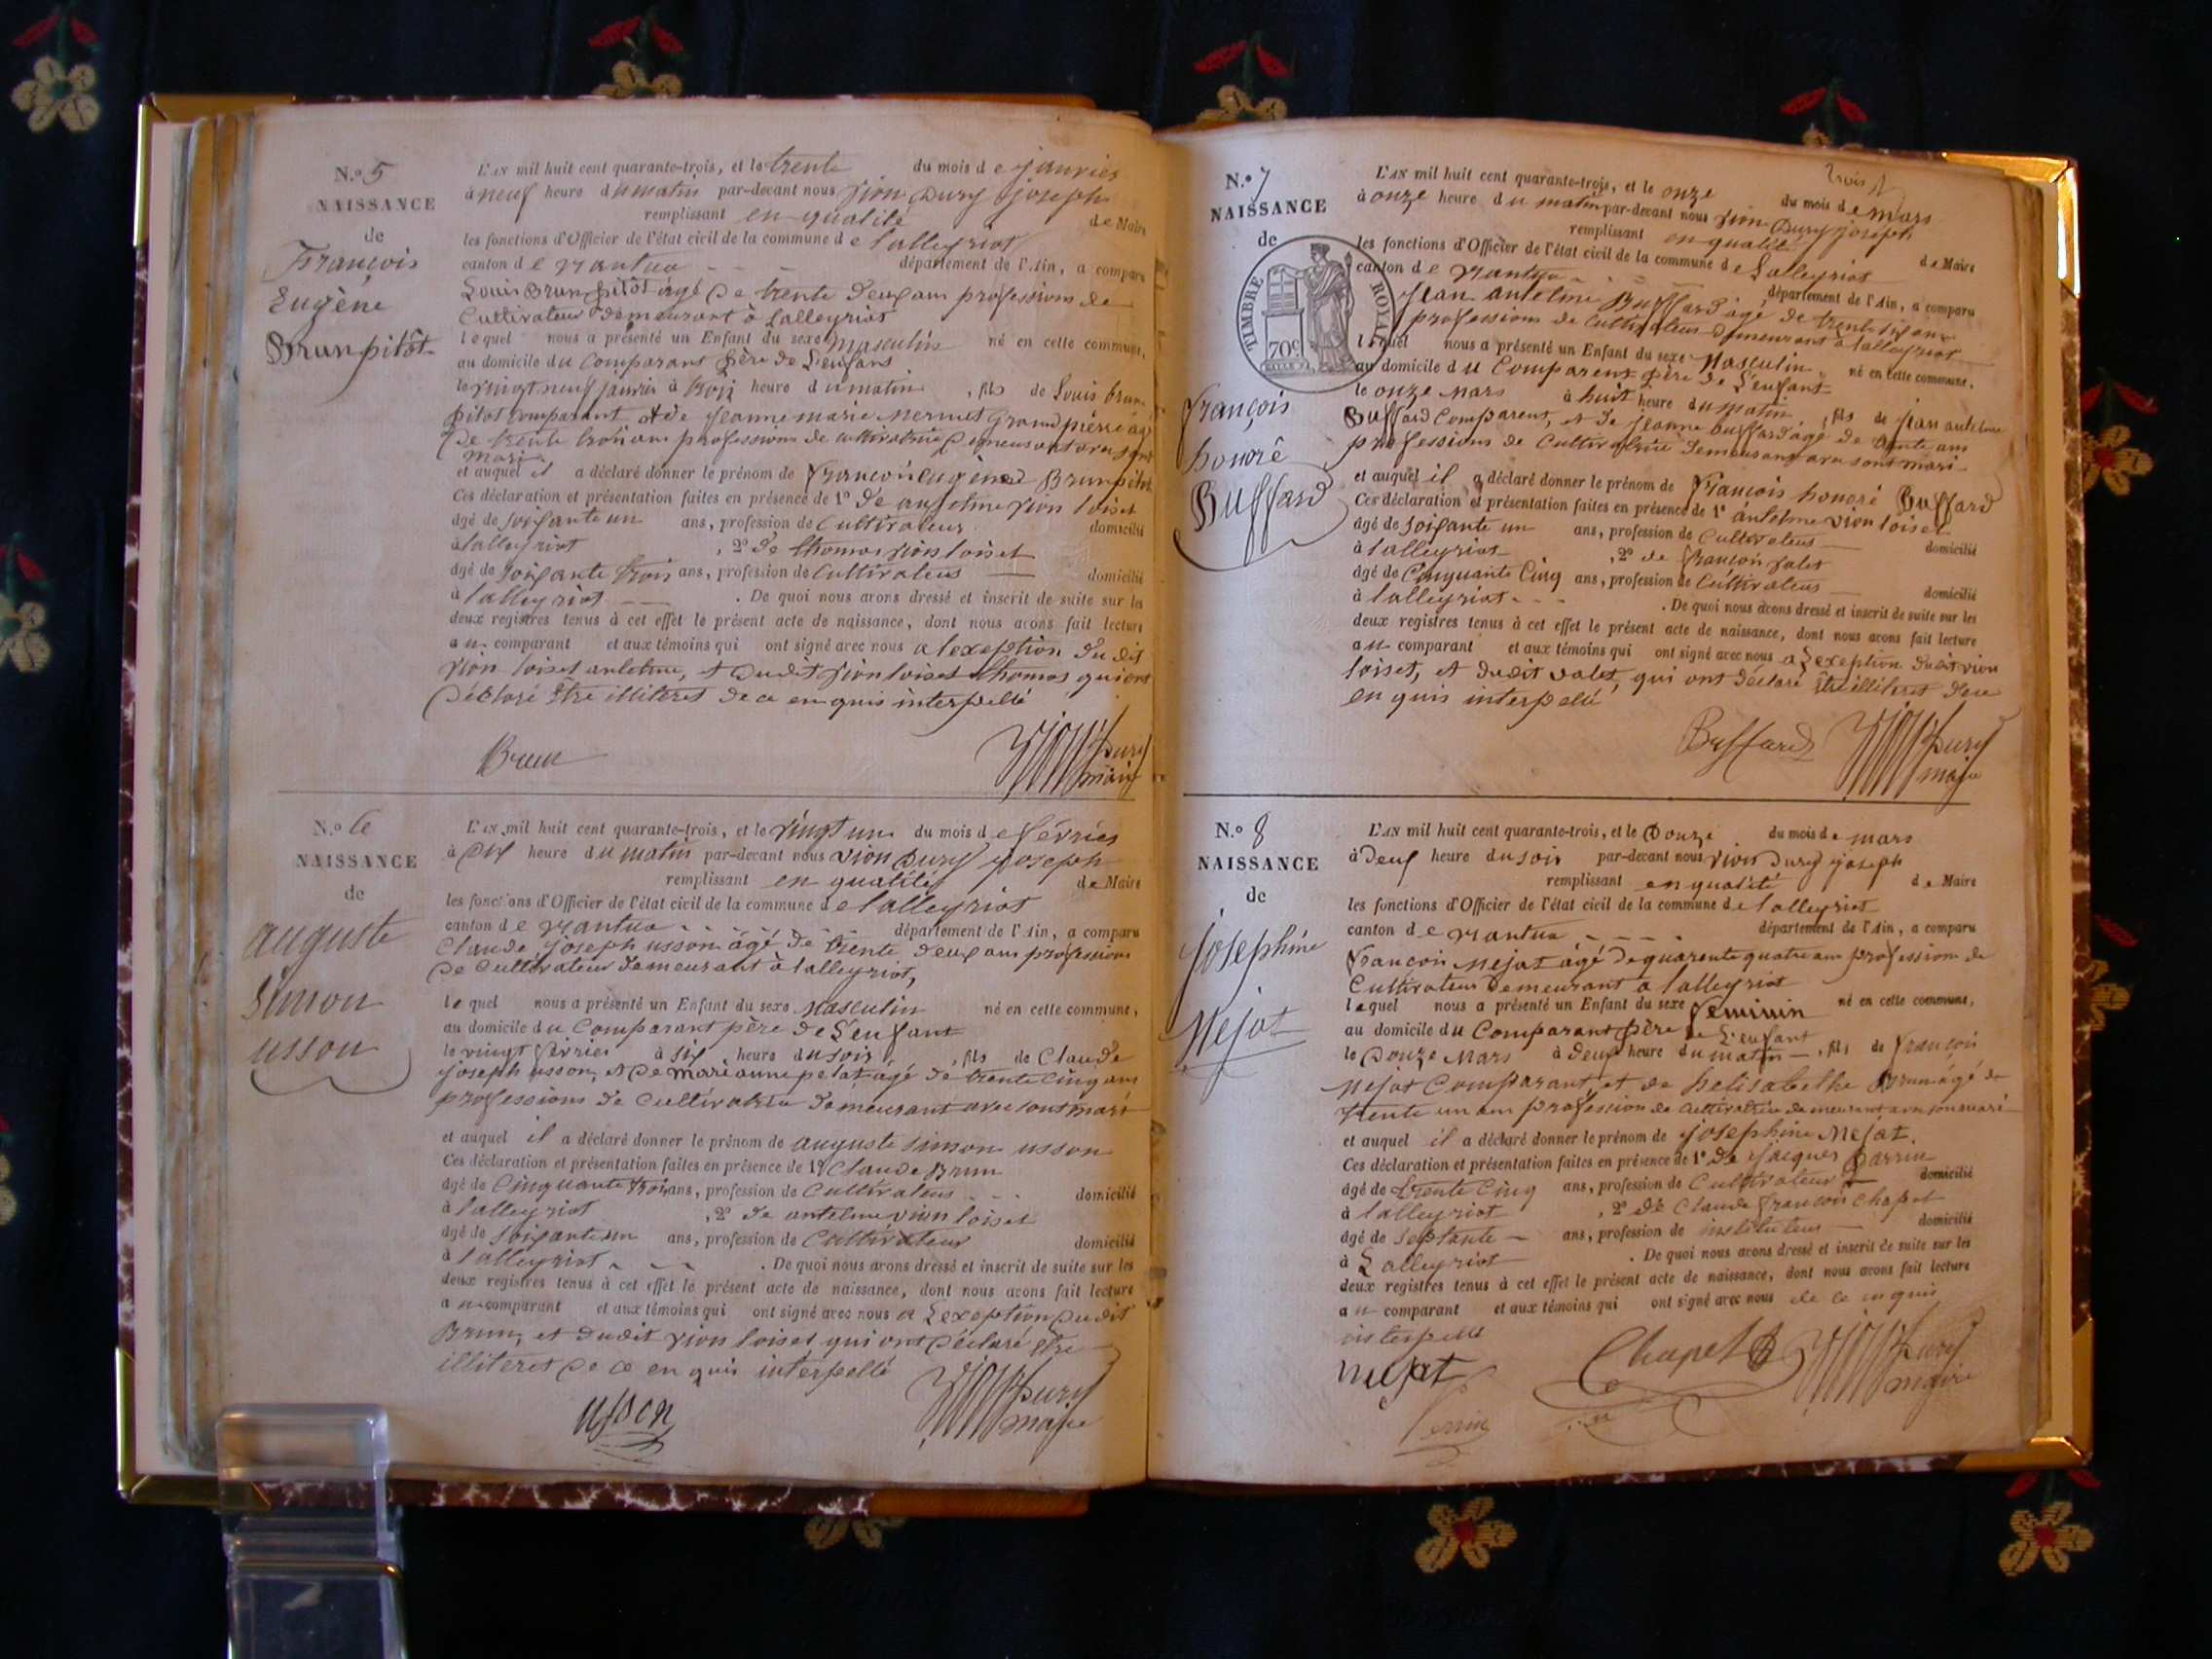 N.o 5
NAISSANCE
de
François
Eugène
Brunpitôt
L'AN mil huit cent quarante-trois, et le trente du mois de janvier
à neuf heure du matin par-devant nous Vion Dury joseph
remplissant en qualité de Maire
les fonctions d'Officier de l'état civil de la commune de lalleyriat
canton de Nantua département de l'Ain, a comparu
Louis Brun pitôt agé de trente deux ans professions de
Cultivateur demeurant à lalleyriat
lequel nous a présenté un Enfant du sexe masculin né en cette commune,
au domicile du Comparant père de L'enfant
le vingt neuf janvier à trois heure du matin, fils de Louis brun
pitot comparant et de jeanne marie mermet grand pierre agé
de trente trois ans professions de cultivatrice demeurant avec sont
mari
et auquel il a déclaré donner le prénom de françois eugène Brunpitot
Ces déclaration et présentation faites en présence de 1° de anselme vion loiset
âgé de soixante un ans, profession de Cultivateur domicilié
à lalleyriat, 2° de thomas vion loiset
âgé de soixante trois ans, profession de Cultivateur domicilié
à lalleyriat. De quoi nous avons dressé et inscrit de suite sur les
deux registres tenus à cet effet le présent acte de naissance, dont nous avons fait lecture
au comparant et aux témoins qui ont signé avec nous a lexeption du dit
vion loiset antelme, et dudit vion loiset thomas qui ont
déclaré être illiteret de ce enquis interpellé
Brun
Vion Dury
maire
N.o 6
NAISSANCE
de
auguste
simon
usson
L'AN mil huit cent quarante-trois, et le vingt un du mois de février
à dix heure du matin par-devant nous vion Dury joseph
remplissant en qualité de Maire
les fonctions d'Officier de l'état civil de la commune de lalleyriat
canton de Nantua département de l'Ain, a comparu
Claude joseph usson âgé de trente deux ans professions
de Cultivateur demeurant à lalleyriat,
lequel nous a présenté un Enfant du sexe Masculin né en cette commune,
au domicile du Comparant père de L'enfant
le vingt février à six heure du soir, fils de Claude
joseph usson, et de marianne pelat âgé de trente cinq ans
professions de Cultivatrice demeurant avec sont mari
et auquel il a déclaré donner le prénom de auguste simon usson
Ces déclaration et présentation faites en présence de 1° Claude Brun
âgé de Cinquante trois ans, profession de Cultivateur domicilié
à lalleyriat, 2° de antelme vion loiset
âgé de soixante un ans, profession de Cultivateur domicilié
à lalleyriat. De quoi nous avons dressé et inscrit de suite sur les
deux registres tenus à cet effet le présent acte de naissance, dont nous avons fait lecture
au comparant et aux témoins qui ont signé avec nous a Lexeption dudit
Brun, et dudit vion loiset qui ont déclaré être
illiteret de ce en quis interpellé
usson
Vion Dury
maire
trois
N.o 7
NAISSANCE
de
TIMBRE ROYAL
70c
françois
honoré
Buffard
L'AN mil huit cent quarante-trois, et le onze du mois de mars
à onze heure du matin par-devant nous vion Dury joseph
remplissant en qualité de Maire
les fonctions d'Officier de l'état civil de la commune de Lalleyriat
canton de Nantua département de l'Ain, a comparu
jean antelme Buffard agé de trente six ans
professions de cultivateur demeurant à lalleyriat
lequel nous a présenté un Enfant du sexe Masculin né en cette commune,
au domicile du Comparent père de L'enfant
le onze mars à huit heure du matin, fils de jean antelme
Buffard Comparent, et de jeanne buffard agé de trente ans
professions de Cultivatrice demeurant avec sont mari
et auquel il a déclaré donner le prénom de françois honoré Buffard
Ces déclaration et présentation faites en présence de 1° antelme vion loiset
âgé de soixante un ans, profession de Cultivateur domicilié
à lalleyriat, 2° de françois jalet
âgé de Cinquante Cinq ans, profession de Cultivateur domicilié
à lalleyriat. De quoi nous avons dressé et inscrit de suite sur les
deux registres tenus à cet effet le présent acte de naissance, dont nous avons fait lecture
au comparant et aux témoins qui ont signé avec nous a Lexeption dudit vion
loiset, et dudit jalet, qui ont déclaré être illiteret de ce
en quis interpellé
Buffard
Vion Dury
maire
N.o 8
NAISSANCE
de
josephine
Nejat
L'AN mil huit cent quarante-trois, et le Douze du mois de mars
à deux heure du soir par-devant nous vion Dury joseph
remplissant en qualité de Maire
les fonctions d'Officier de l'état civil de la commune de lalleyriat
canton de Nantua département de l'Ain, a comparu
françois Nejat âgé de quarente quatre ans profession de
Cultivateur demeurant a lalleyriat
lequel nous a présenté un Enfant du sexe feminin né en cette commune,
au domicile du Comparant père de L'enfant
le Douze Mars à deux heure du matin, fils de françois
Nejat Comparant, et de helisabethe Brun agé de
trente un ans profession de cultivatrice demeurant avec son mari
et auquel il a déclaré donner le prénom de josephine Nejat.
Ces déclaration et présentation faites en présence de 1° de jacques perrin
âgé de trente Cinq ans, profession de Cultivateur domicilié
à lalleyriat, 2° de Claude françois Chapet
âgé de septante ans, profession de instituteur domicilié
à Lalleyriat. De quoi nous avons dressé et inscrit de suite sur les
deux registres tenus à cet effet le présent acte de naissance, dont nous avons fait lecture
au comparant et aux témoins qui ont signé avec nous de ce enquis
interpellé
nejat
Chapet
Vion Dury
maire
Perrin